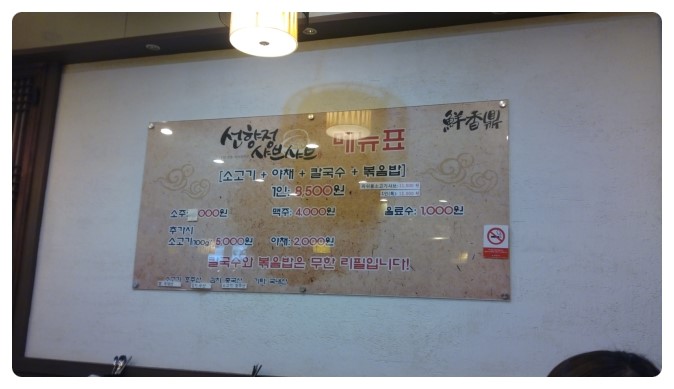 선향정
샤브샤브 메뉴표 鮮香鼎
[소고기 + 야채 + 칼국수 + 볶음밥]
1인: 8,500원
소주: 000원 맥주: 4,000원 음료수: 1,000원
추가시
소고기100g: 5,000원 야채: 2,000원
칼국수와 볶음밥은 무한 리필입니다!
소고기 호주산 김치 중국산 기타 국내산